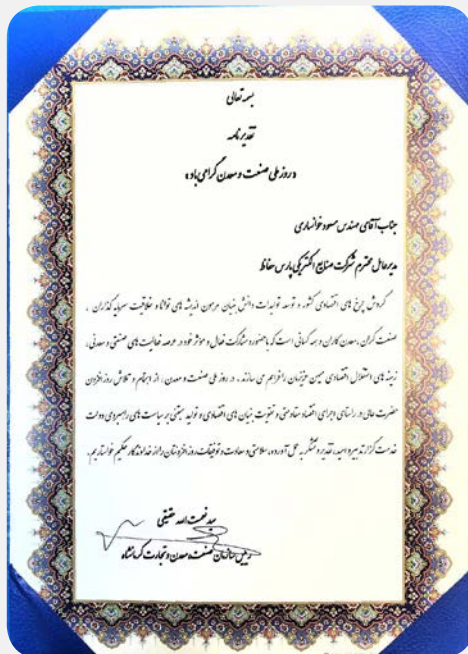 بسمه تعالی
تقدیرنامه
«روز ملی صنعت و معدن گرامی باد»
جناب آقای مهندس مسعود خوانساری
مدیرعامل محترم شرکت صنایع الکتریکی پارس حفاظ
گردش چرخ های اقتصادی کشور و توسعه تولیدات دانش بنیان مرهون اندیشه های توانا و خلاقیت سرمایه گذاران ،
صنعت گران ، معدن کاران و همه کسانی است که با حضور و مشارکت فعال و موثر خود در عرصه فعالیت های صنعتی و معدنی ،
زمینه های استقلال اقتصادی میهن عزیزمان را فراهم می سازند . در روز ملی صنعت و معدن ، از اهتمام و تلاش روزافزون
حضرت عالی در راستای اجرای اقتصاد مقاومتی و تقویت بنیان های اقتصادی و تولید مبتنی بر سیاست های راهبردی دولت
خدمت گزار تدبیر و امید، تقدیر و تشکر به عمل آورده، سلامتی و سعادت و توفیقات روزافزونتان را از خداوندگار حکیم خواستاریم.
سید نعمت اله حقیقی
رییس سازمان صنعت و معدن و تجارت کرمانشاه